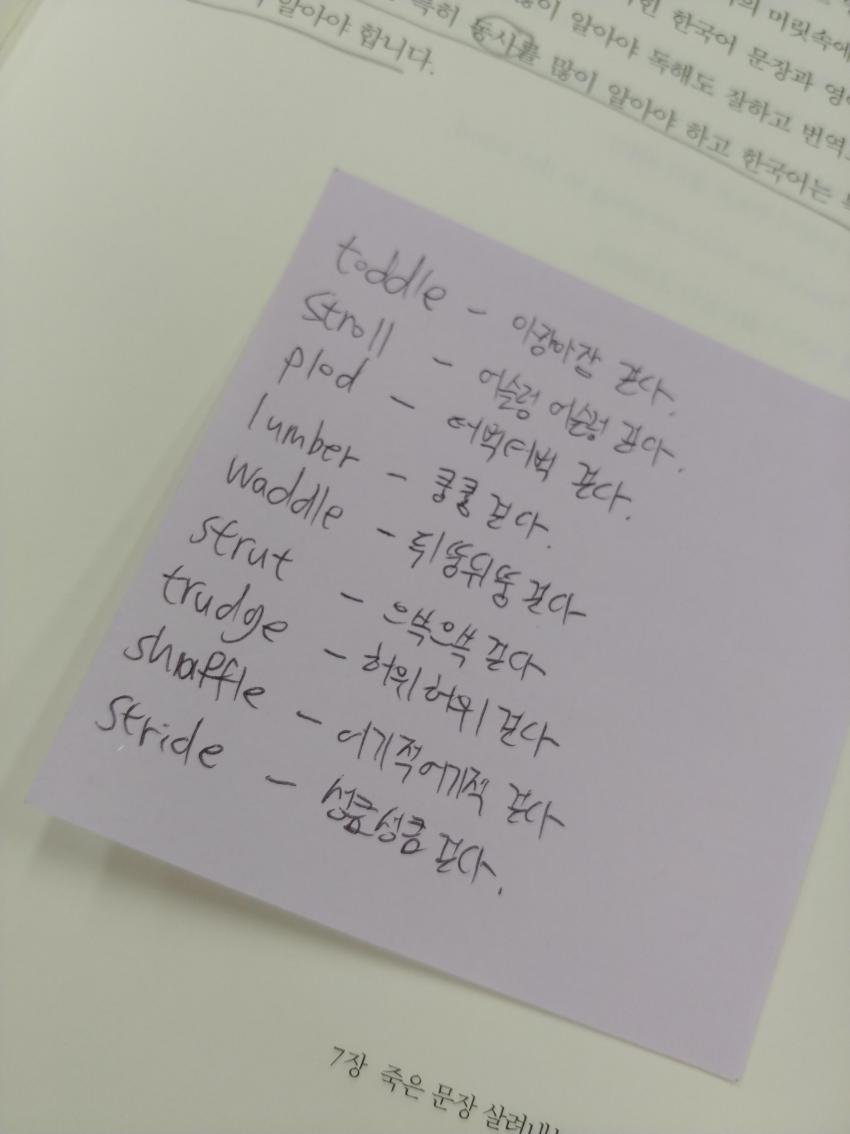 의 머릿속에
한국어 문장과 영어
많이 알아야 독해도 잘하고 번역도
특히 동사를 많이 알아야 하고 한국어는
알아야 합니다.
toddle - 아장아장 걷다.
stroll - 어슬렁 어슬렁 걷다.
plod - 터벅터벅 걷다.
lumber - 쿵쿵 걷다.
waddle - 뒤뚱뒤뚱 걷다
strut - 으쓱으쓱 걷다
trudge - 허위허위 걷다
shuffle - 어기적어기적 걷다
stride - 성큼성큼 걷다.
7장 죽은 문장 살려내